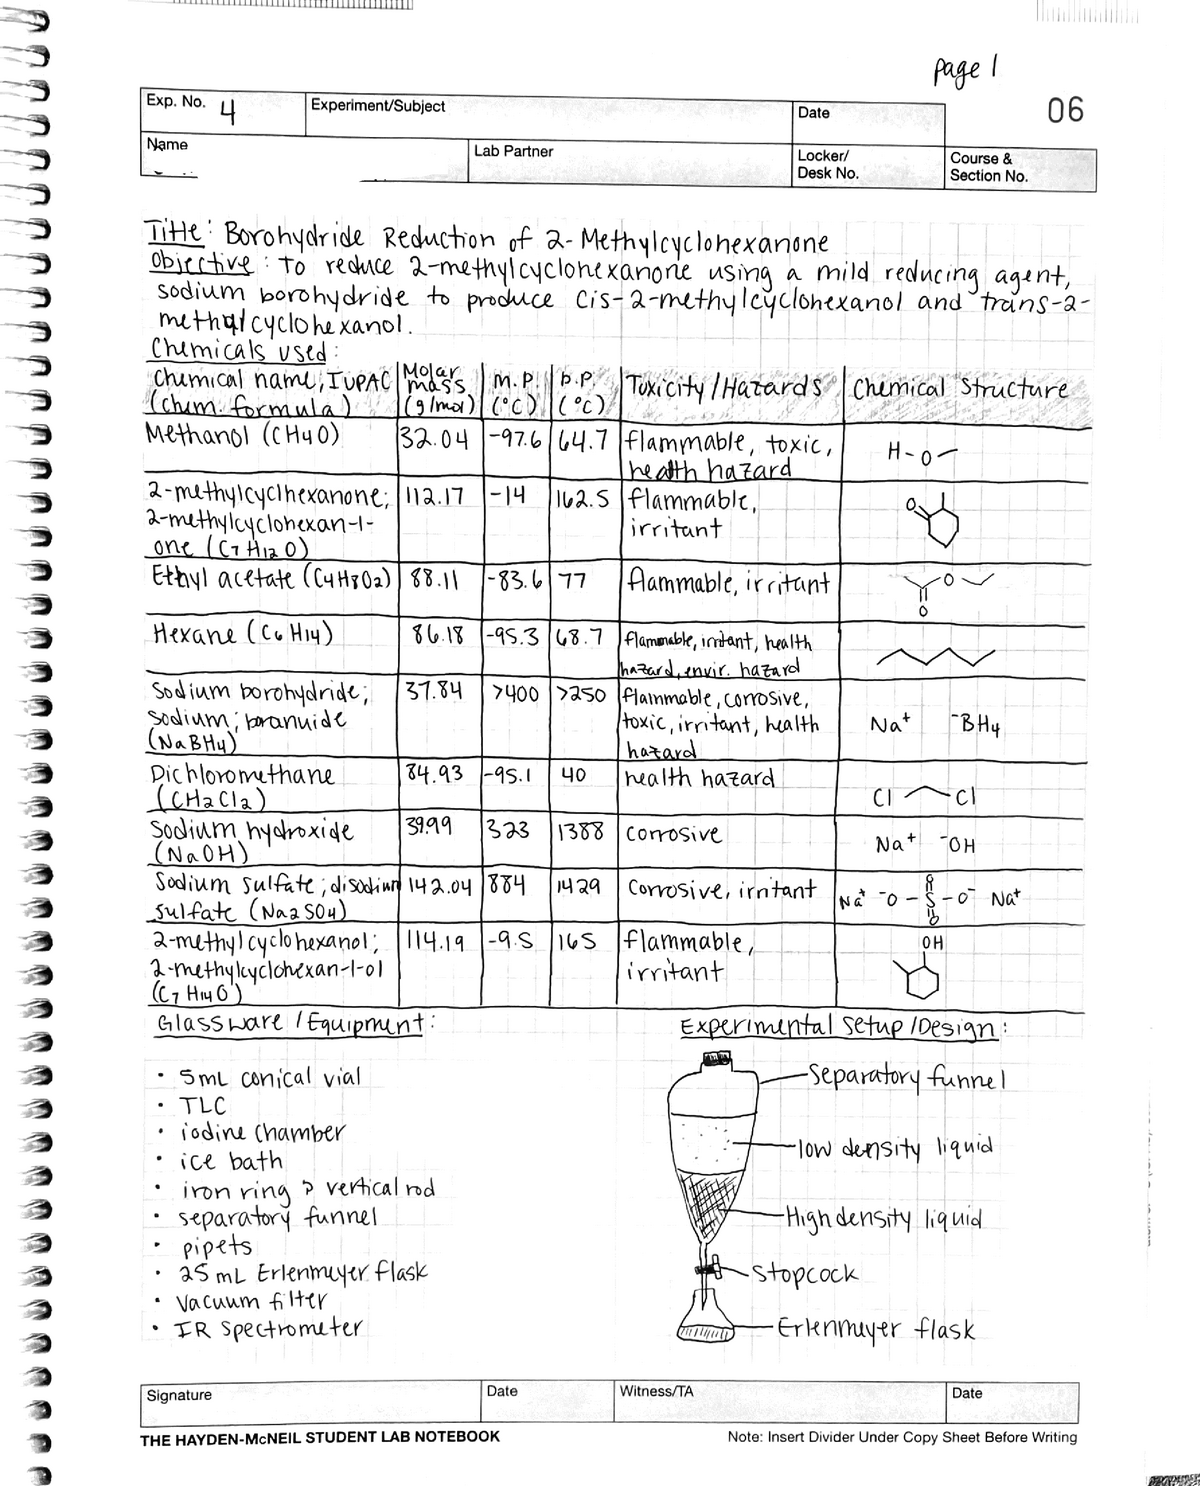 page 1
Exp. No. 4
Experiment/Subject
Date
06
Name
Lab Partner
Locker/
Desk No.
Course &
Section No.
Title: Borohydride Reduction of 2-Methylcyclohexanone
Objective: To reduce 2-methylcyclohexanone using a mild reducing agent,
sodium borohydride to produce cis-2-methylcyclohexanol and trans-2-
methylcyclohexanol.
Chemicals used:
Chemical name; IUPAC (chem. formula) | Molar mass (g/mol) | m.p. (°C) | b.p. (°C) | Toxicity/Hazards | Chemical Structure
Methanol (CH4O) | 32.04 | -97.6 | 64.7 | flammable, toxic, health hazard | H-O
2-methylcyclhexanone; 2-methylcyclohexan-1-one (C7H12O) | 112.17 | -14 | 162.5 | flammable, irritant | O
Ethyl acetate (C4H8O2) | 88.11 | -83.6 | 77 | flammable, irritant | O O
Hexane (C6H14) | 86.18 | -95.3 | 68.7 | flammable, irritant, health hazard, envir. hazard
Sodium borohydride; sodium; boranuide (NaBH4) | 37.84 | >400 | >250 | flammable, corrosive, toxic, irritant, health hazard | Na+ -BH4
Dichloromethane (CH2Cl2) | 84.93 | -95.1 | 40 | health hazard | Cl Cl
Sodium hydroxide (NaOH) | 39.99 | 323 | 1388 | corrosive | Na+ -OH
Sodium sulfate; disodium sulfate (Na2SO4) | 142.04 | 884 | 1429 | corrosive, irritant | Na+ -O-S-O- Na+ O O
2-methylcyclohexanol; 2-methylcyclohexan-1-ol (C7H14O) | 114.19 | -9.5 | 165 | flammable, irritant | OH
Glassware/Equipment:
• 5mL conical vial
• TLC
• iodine chamber
• ice bath
• iron ring > vertical rod
• separatory funnel
• pipets
• 25 mL Erlenmeyer flask
• vacuum filter
• IR spectrometer
Experimental Setup/Design:
separatory funnel
low density liquid
High density liquid
stopcock
Erlenmeyer flask
Signature
Date
Witness/TA
Date
THE HAYDEN-McNEIL STUDENT LAB NOTEBOOK
Note: Insert Divider Under Copy Sheet Before Writing